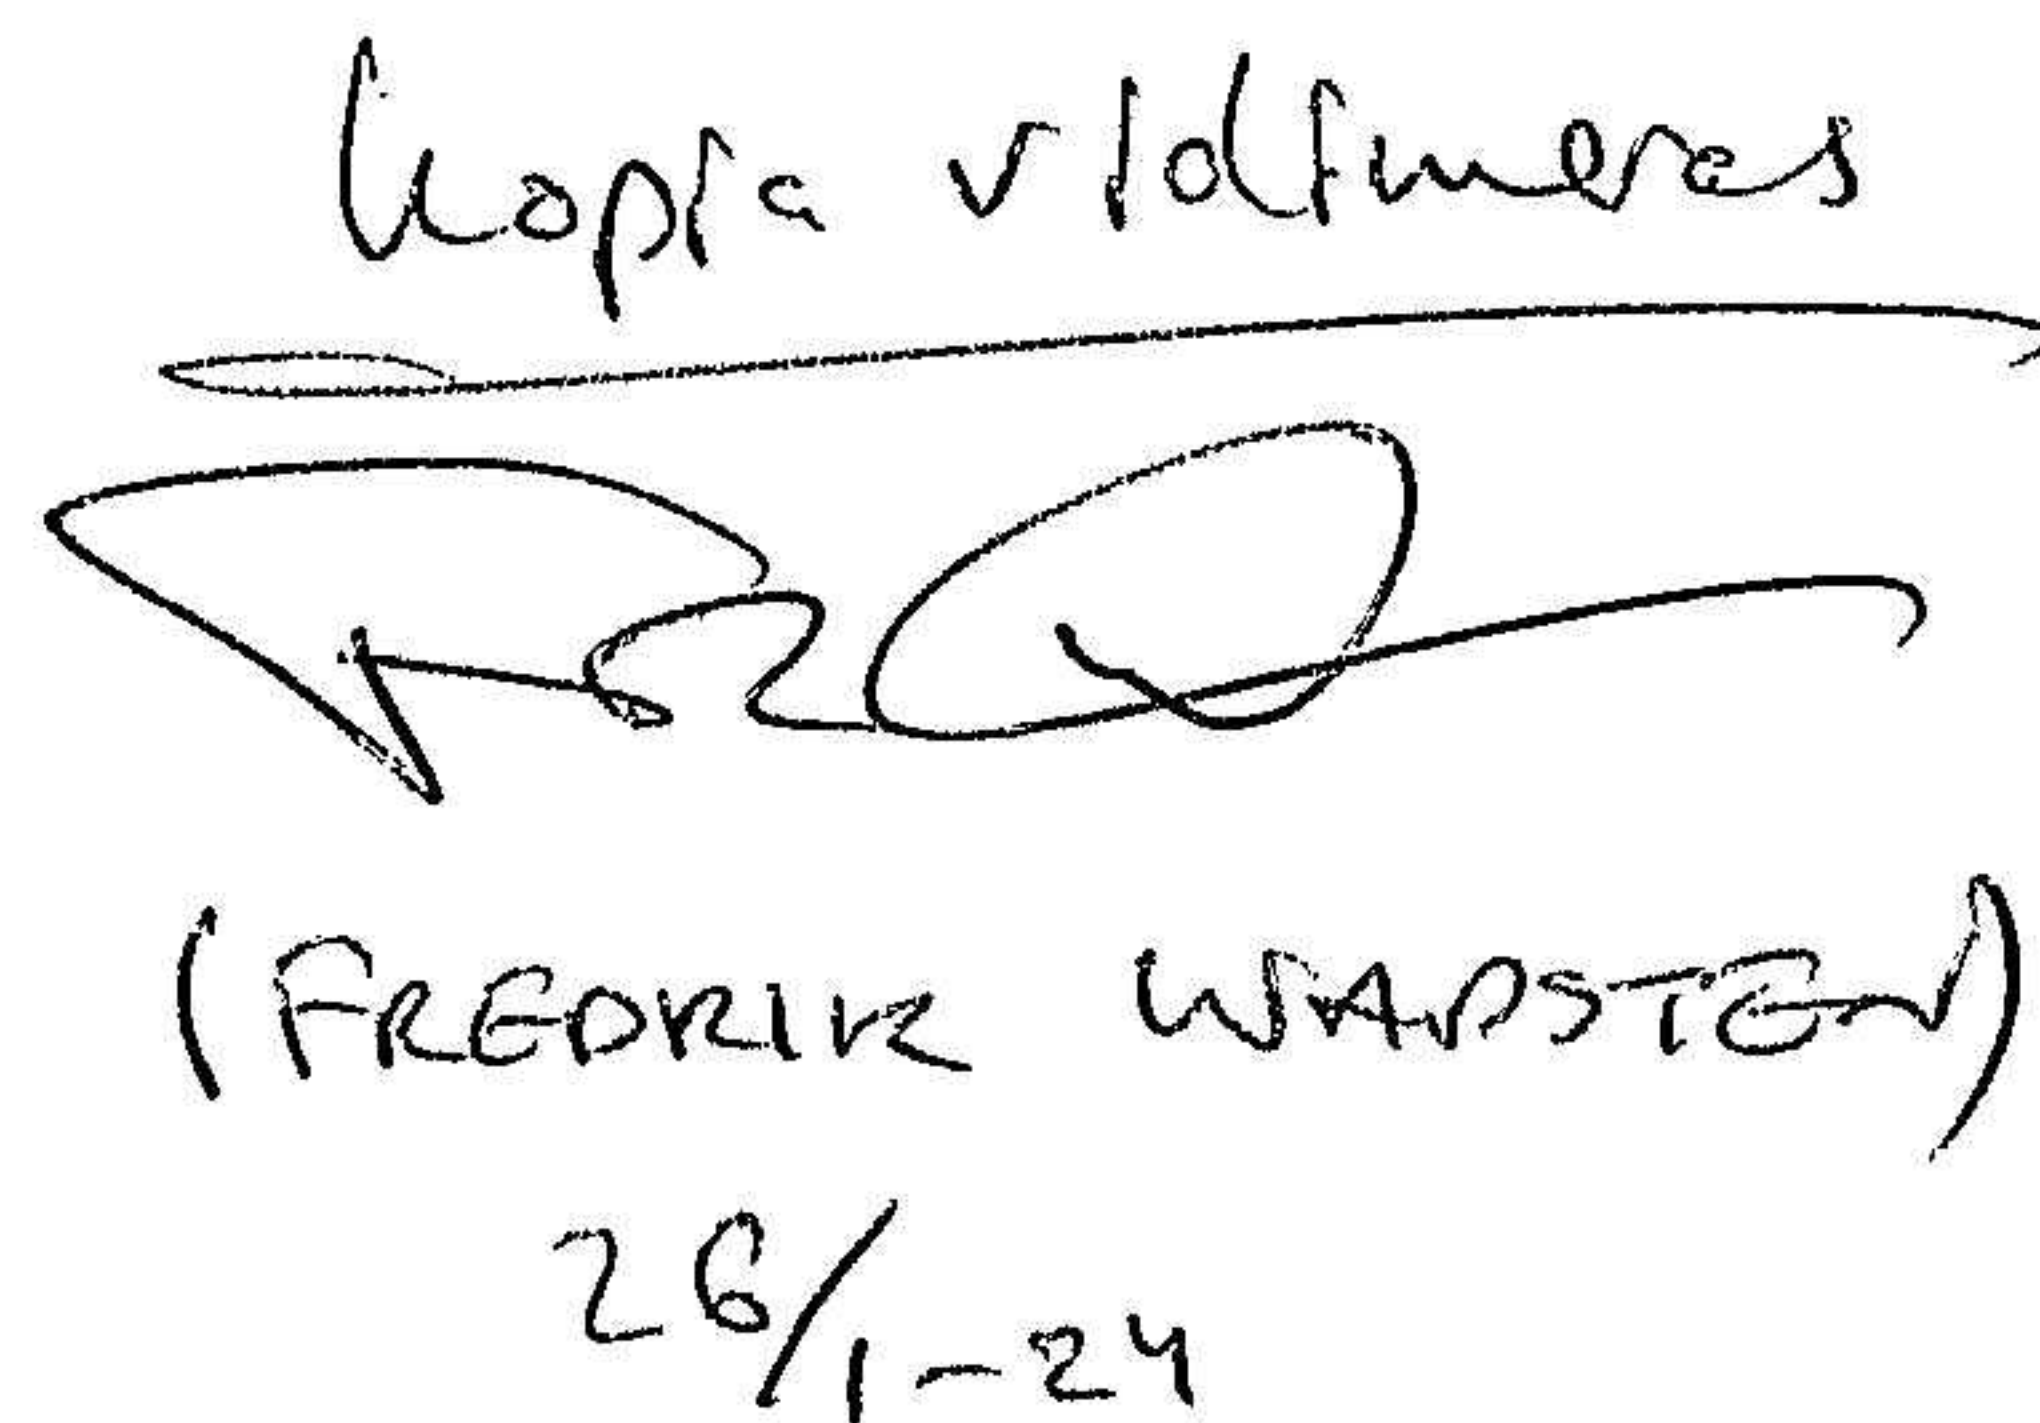 Kopia vidimeras
(FREDRIK WADSTEN)
26/1-24